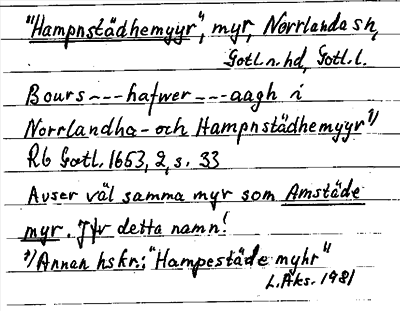 "Hampnstädhemyyr", myr, Norrlanda sn,
Gotl. n. hd, Gotl. l.
Bours---hafwer---aagh i
Norrlandha- och Hampnstädhemyyr¹⁾
Rb Gotl. 1653, 2, s. 33
Avser väl samma myr som Amstäde
myr. Jfr detta namn!
¹⁾ Annan hskr.: "Hampestäde myhr"
L. Aks. 1981